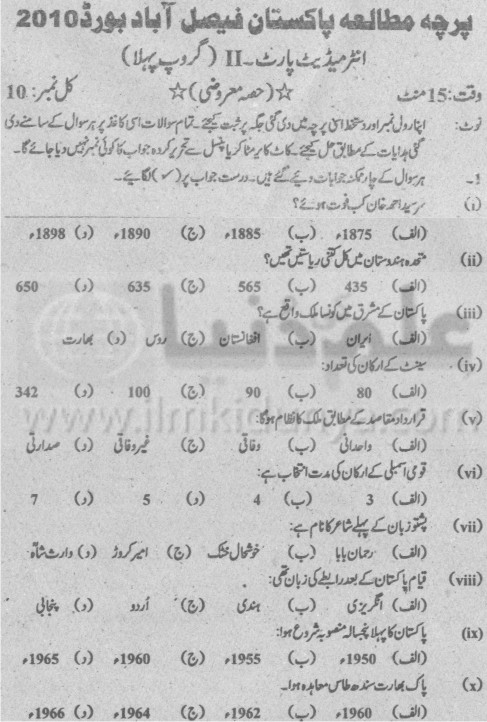 پرچہ مطالعہ پاکستان فیصل آباد بورڈ 2010
انٹرمیڈیٹ پارٹ۔ II (گروپ پہلا)
وقت: 15 منٹ ☆(حصہ معروضی)☆ کل نمبر: 10
نوٹ: اپنا رول نمبر اور دستخط اسی پرچہ میں دی گئی جگہ پر ثبت کیجئے۔ تمام سوالات اسی کاغذ پر ہر سوال کے سامنے دی
گئی ہدایات کے مطابق حل کیجئے۔ کاٹ کر مٹا کر یا پنسل سے تحریر کردہ جواب کا کوئی نمبر نہیں دیا جائے گا۔
1۔ ہر سوال کے چار ممکنہ جوابات دیئے گئے ہیں۔ درست جواب پر (✓) لگائیے۔
(i) سر سید احمد خان کب فوت ہوئے؟
(الف) 1875ء (ب) 1885ء (ج) 1890ء (د) 1898ء
(ii) متحدہ ہندوستان میں کل کتنی ریاستیں تھیں؟
(الف) 435 (ب) 565 (ج) 635 (د) 650
(iii) پاکستان کے مشرق میں کونسا ملک واقع ہے؟
(الف) ایران (ب) افغانستان (ج) روس (د) بھارت
(iv) سینٹ کے ارکان کی تعداد:
(الف) 80 (ب) 90 (ج) 100 (د) 342
(v) قرارداد مقاصد کے مطابق ملک کا نظام ہوگا:
(الف) واحدانی (ب) وفاقی (ج) غیر وفاقی (د) صدارتی
(vi) قومی اسمبلی کے ارکان کی مدت انتخاب ہے:
(الف) 3 (ب) 4 (ج) 5 (د) 7
(vii) پشتو زبان کے پہلے شاعر کا نام ہے:
(الف) رحمان بابا (ب) خوشحال خٹک (ج) امیر کروڑ (د) وارث شاہ
(viii) قیام پاکستان کے بعد رابطے کی زبان تھی:
(الف) انگریزی (ب) ہندی (ج) اُردو (د) پنجابی
(ix) پاکستان کا پہلا پنجسالہ منصوبہ شروع ہوا:
(الف) 1950ء (ب) 1955ء (ج) 1960ء (د) 1965ء
(x) پاک بھارت سندھ طاس معاہدہ ہوا۔
(الف) 1960ء (ب) 1962ء (ج) 1964ء (د) 1966ء
علم کی دنیا
www.ilmkidunya.com